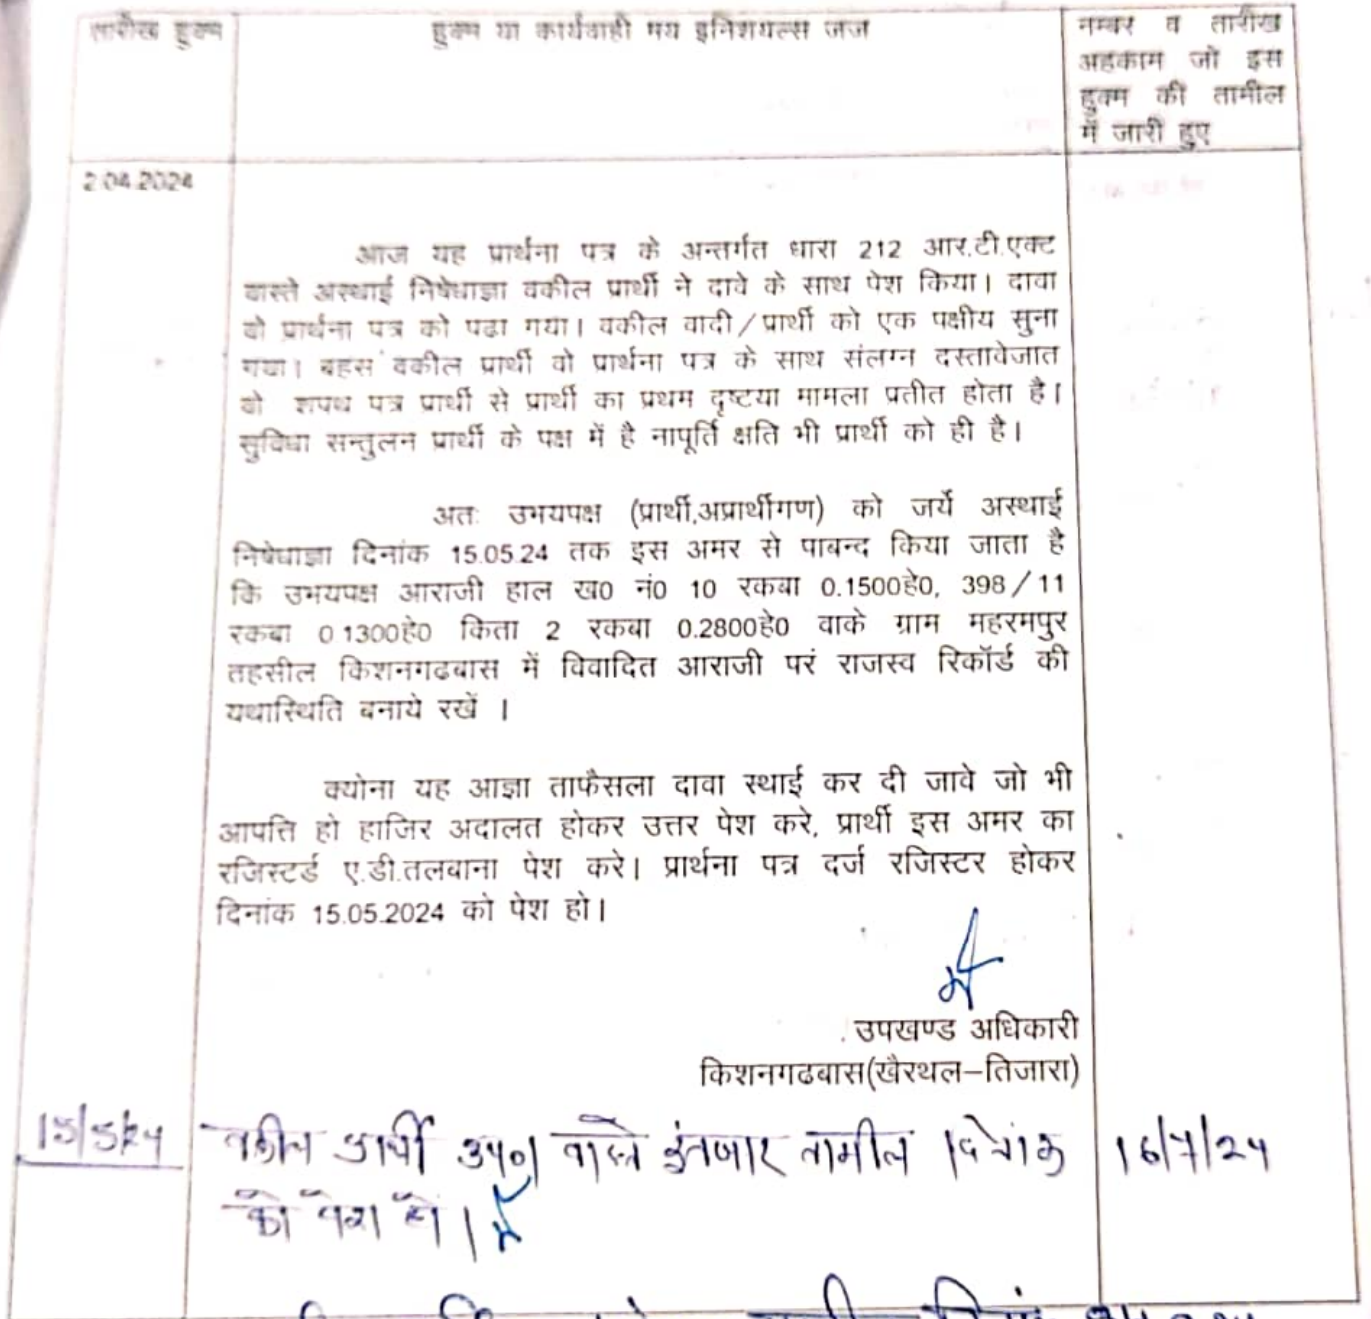 तारीख हुक्म
हुक्म या कार्यवाही मय इनिशयल्स जज
नम्बर व तारीख
अहकाम जो इस
हुक्म की तामील
में जारी हुए
2.04.2024
आज यह प्रार्थना पत्र के अन्तर्गत धारा 212 आर.टी.एक्ट
वास्ते अस्थाई निषेधाज्ञा वकील प्रार्थी ने दावे के साथ पेश किया। दावा
वो प्रार्थना पत्र को पढा गया। वकील वादी/प्रार्थी को एक पक्षीय सुना
गया। बहस वकील प्रार्थी वो प्रार्थना पत्र के साथ संलग्न दस्तावेजात
वो शपथ पत्र प्रार्थी से प्रार्थी का प्रथम दृष्टया मामला प्रतीत होता है।
सुविधा सन्तुलन प्रार्थी के पक्ष में है नापूर्ति क्षति भी प्रार्थी को ही है।
अतः उभयपक्ष (प्रार्थी,अप्रार्थीगण) को जर्ये अस्थाई
निषेधाज्ञा दिनांक 15.05.24 तक इस अमर से पाबन्द किया जाता है
कि उभयपक्ष आराजी हाल ख0 नं0 10 रकबा 0.1500हे0, 398/11
रकबा 0.1300हे0 किता 2 रकबा 0.2800हे0 वाके ग्राम महरमपुर
तहसील किशनगढबास में विवादित आराजी पर राजस्व रिकॉर्ड की
यथास्थिति बनाये रखें ।
क्योना यह आज्ञा ताफैसला दावा स्थाई कर दी जावे जो भी
आपत्ति हो हाजिर अदालत होकर उत्तर पेश करे, प्रार्थी इस अमर का
रजिस्टर्ड ए.डी.तलबाना पेश करे। प्रार्थना पत्र दर्ज रजिस्टर होकर
दिनांक 15.05.2024 को पेश हो।
उपखण्ड अधिकारी
किशनगढबास(खैरथल–तिजारा)
15/5/24 वकील प्रार्थी उप0। वास्ते इंतजार तामील दिनांक 16/7/24
को पेश हो।